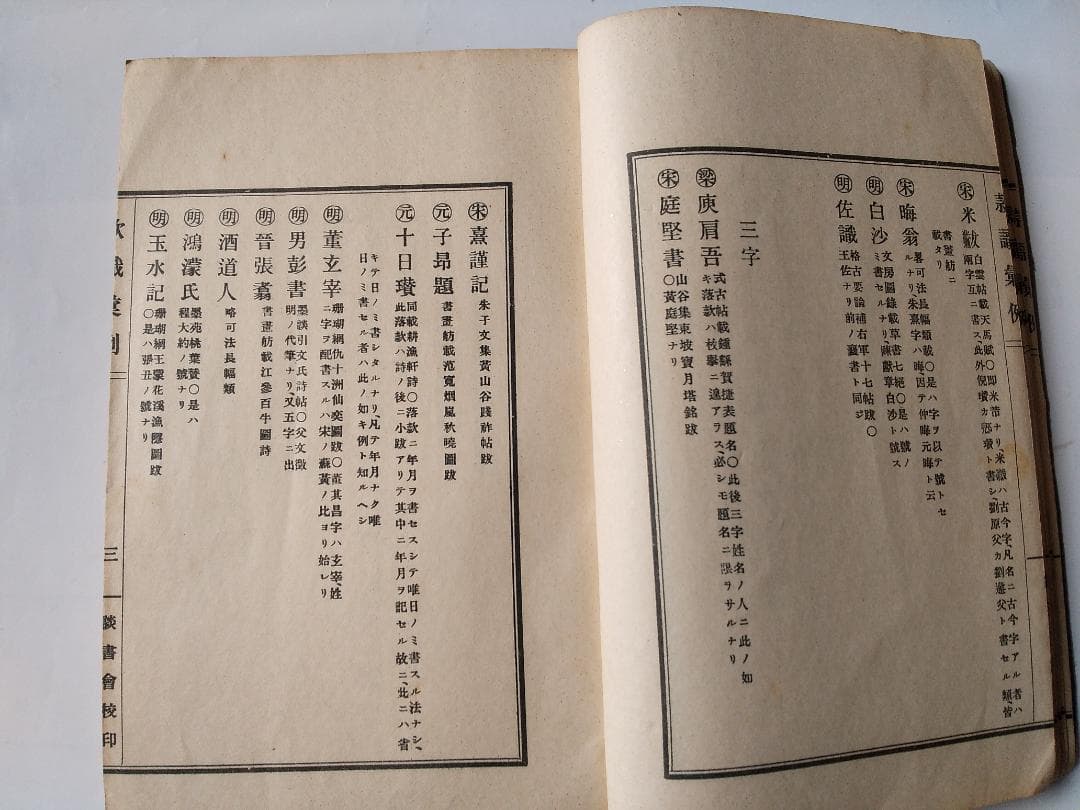 宋 米黻
白雲帖載天馬賦〇即米芾ナリ、米黻ハ古今字、凡名ニ古今字アル者ハ
兩字互ニ書ス、此外倪瓚カ
書シ、劉原父カ
ト書セル類、皆
書畫舫ニ
載タリ
宋 晦翁
畧可法長幅類載〇是ハ字ヲ以テ號トセ
ルナリ朱熹字ハ晦因テ仲晦元晦ト云
明 白沙
文房圖錄載草書七絕〇是ハ號ノ
ミ書セルナリ陳獻章白沙ト號ス
明 佐識
格古要論補右軍十七帖跋〇
王佐ナリ前ノ襄書ト同ジ
三字
梁 庾肩吾
式古帖載鍾繇賀捷表題名〇此後三字姓名ノ人ニ此ノ如
キ落款ハ枚擧ニ遑アラス、必シモ題名ニ限ラサルナリ
宋 庭堅書
山谷集東坡寶月塔銘跋
〇黃庭堅ナリ
宋 熹謹記
朱子文集黃山谷踐祚帖跋
元 子昂題
書畫舫載范寬烟嵐秋曉圖跋
元 十日瓚
同載耕漁軒詩〇落款ニ年月ヲ書セスシテ唯日ノミ書スル法ナシ、
此落款ハ詩ノ後ニ小跋アリテ其中ニ年月ヲ記セル故ニ、此ニハ省
キテ日ノミ書シタルナリ、凡テ年月ナク唯
日ノミ書セル者ハ此ノ如キ例ト知ルヘシ
明 董玄宰
珊瑚網仇十洲仙奕圖跋〇董其昌字ハ玄宰、姓
ニ字ヲ配書スルハ宋ノ蘇黃ノ比ヨリ始レリ
明 男彭書
墨談引文氏詩帖〇父文徵
明ノ代筆ナリ又五字ニ出
明 晉張翥
書畫舫載江參百牛圖詩
明 酒道人
略可法長幅類
明 鴻濛氏
墨苑桃葉贊〇是ハ
程大約ノ號ナリ
明 玉水記
珊瑚網王蒙花溪漁隱圖跋
〇是ハ張丑ノ號ナリ
三
談書會校印